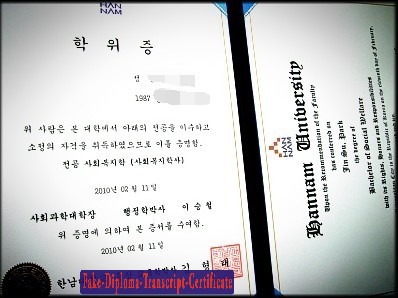 HAN
NAM
학 위 증
성
1987
위 사람은 본 대학에서 아래의 전공을 이수하고
소정의 자격을 취득하였으므로 이를 증명함.
전공 사회복지학 (사회복지학사)
2010 年 02 월 11 日
사회과학대학장 행정학박사 이 승 철
위 증명에 의하여 본 증서를 수여함.
2010 年 02 월 11 日
한남
박사 김 형 태
Fake-Diploma-Transcript-Certificate
HAN
NAM
Hannam University
Upon the Recommendation of the Faculty
has conferred on
Jin Su, Park
the degree of
Bachelor of Social Welfare
with its Rights, Honors and Responsibilities